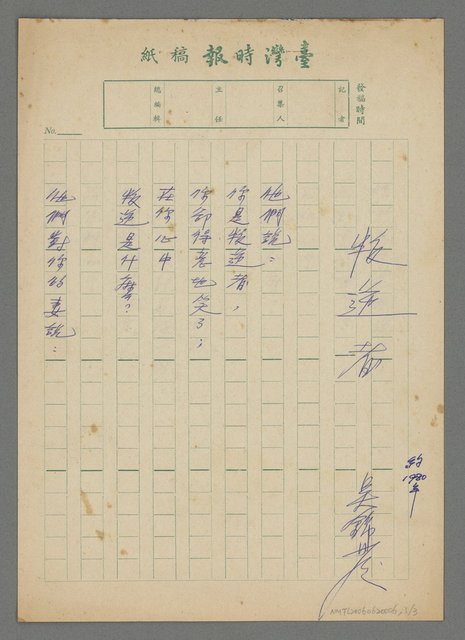 臺灣時報稿紙
發稿時間
記者
召集人
主任
總編輯
No.
叛逆者
約1980年
吳錦發
他們說：
你是叛逆者，
你卻得意地笑了；
在你心中
叛逆是什麼？
他們對你的妻說：